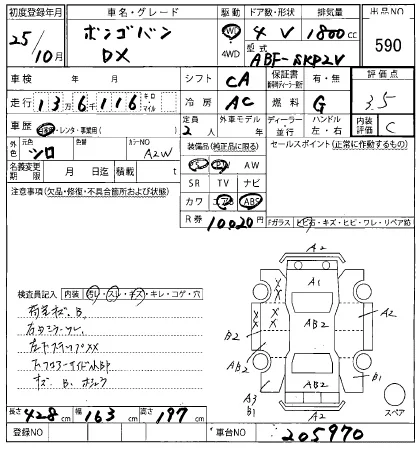 初度登録年月 車名・グレード 駆動 ドア数・形状 排気量 出品NO
25/10月 ボンゴバン DX 2WD 4WD 4 V 1800cc 590
型式 ABF-SKP2V
車検 年 月 シフト CA 保証書 有・無 評価点
走行 13万6千116 キロ・マイル 冷房 AC 燃料 G 3.5
車歴 自家用・レンタ・事業用( ) 定員 2人 外車モデル ディーラー・並行 ハンドル 左・右 内装評価 C
外色 元色 シロ 色替 カラーNO A2W 装備品(純正品に限る) セールスポイント(正常に作動するもの)
名義変更期限 月 日迄 積載 t PS PW AW
注意事項(欠品・修復・不具合箇所および状態) SR TV ナビ
カワ エアB ABS
R券 10020円 Fガラス トビ石・キズ・ヒビ・ワレ・リペア跡
A2
A1
検査員記入 内装 汚レ・スレ・キズ・キレ・コゲ・穴
X X X X
AB2 A2
B2
左下ステップXX
AB2 AB2 B1
キズ B.
A3 B1
A2 スペア
長さ 428cm 幅 163cm 高さ 197cm
登録NO 車台NO 205970